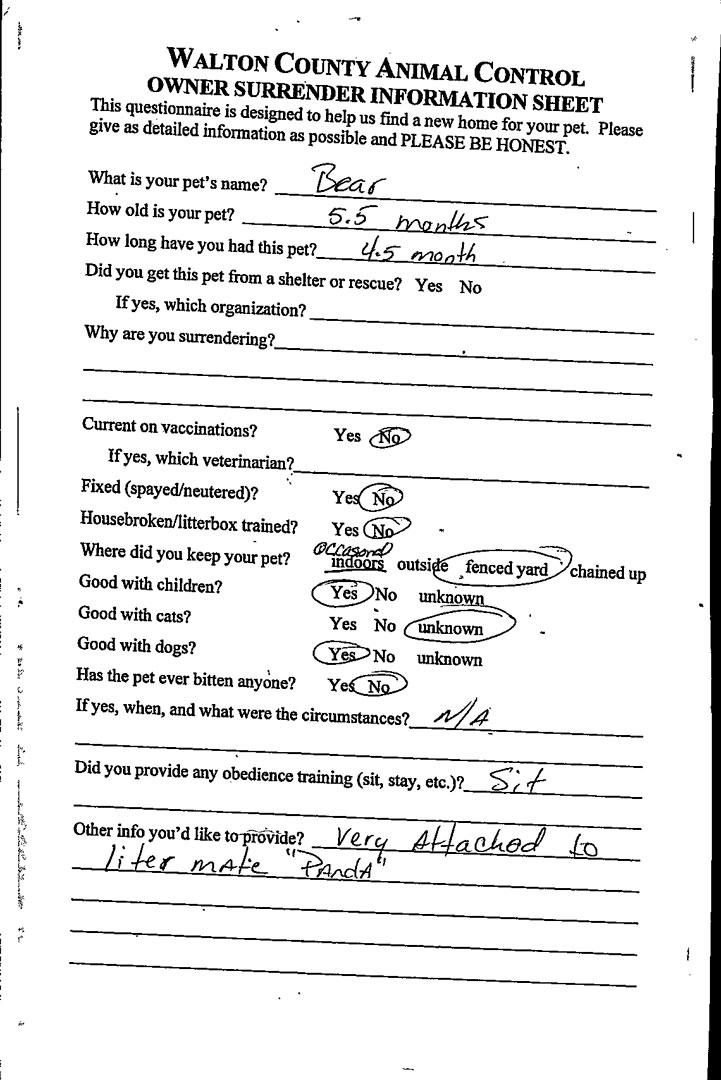 WALTON COUNTY ANIMAL CONTROL
OWNER SURRENDER INFORMATION SHEET
This questionnaire is designed to help us find a new home for your pet. Please
give as detailed information as possible and PLEASE BE HONEST.
What is your pet's name? Bear
How old is your pet? 5.5 months
How long have you had this pet? 4.5 month
Did you get this pet from a shelter or rescue? Yes No
If yes, which organization?
Why are you surrendering?
Current on vaccinations? Yes No
If yes, which veterinarian?
Fixed (spayed/neutered)? Yes No
Housebroken/litterbox trained? Yes No
occasonal
Where did you keep your pet? indoors outside fenced yard chained up
Good with children? Yes No unknown
Good with cats? Yes No unknown
Good with dogs? Yes No unknown
Has the pet ever bitten anyone? Yes No
If yes, when, and what were the circumstances? N/A
Did you provide any obedience training (sit, stay, etc.)? Sit
Other info you'd like to provide? Very Attached to
liter mate "PAndA"